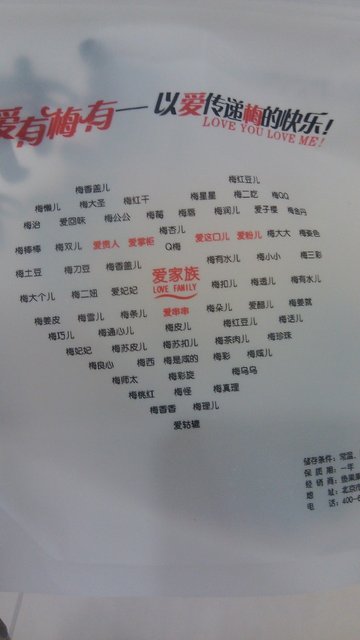 爱有梅有— 以爱传递梅的快乐!
LOVE YOU LOVE ME!
梅香盖儿 梅红豆儿
梅懒儿 梅大圣 梅红干 梅星星 梅二吃 梅QQ
梅治 爱回味 梅公公 梅莓 梅唇 梅润儿 爱子樱 梅金丹
梅杏儿
梅棒棒 梅双儿 爱贵人 爱掌柜 Q梅 爱这口儿 爱粉儿 梅大大 梅姜色
梅土豆 梅刀豆 梅香盖儿 爱家族 梅有水儿 梅小小 梅三彩
LOVE FAMILY
梅大个儿 梅二妞 爱妃妃 梅扣儿 梅透儿 梅有水儿
爱串串
梅姜皮 梅雪儿 梅条儿 梅朵儿 爱醋儿 梅姜就
梅巧儿 梅通心儿 梅皮儿 梅红豆儿 梅话儿
梅妃妃 梅苏皮儿 梅苏扣儿 梅茶肉儿 梅珍珠
梅良心 梅西 梅是咸的 梅彩 梅炫儿
梅师太 梅彩旋 梅乌乌
梅桃红 梅怪 梅真理
梅香香 梅理儿
爱轱辘
储存条件: 常温、
保 质 期: 一年
经 销 商: 悠果果
地 址: 北京市
电 话: 400-6